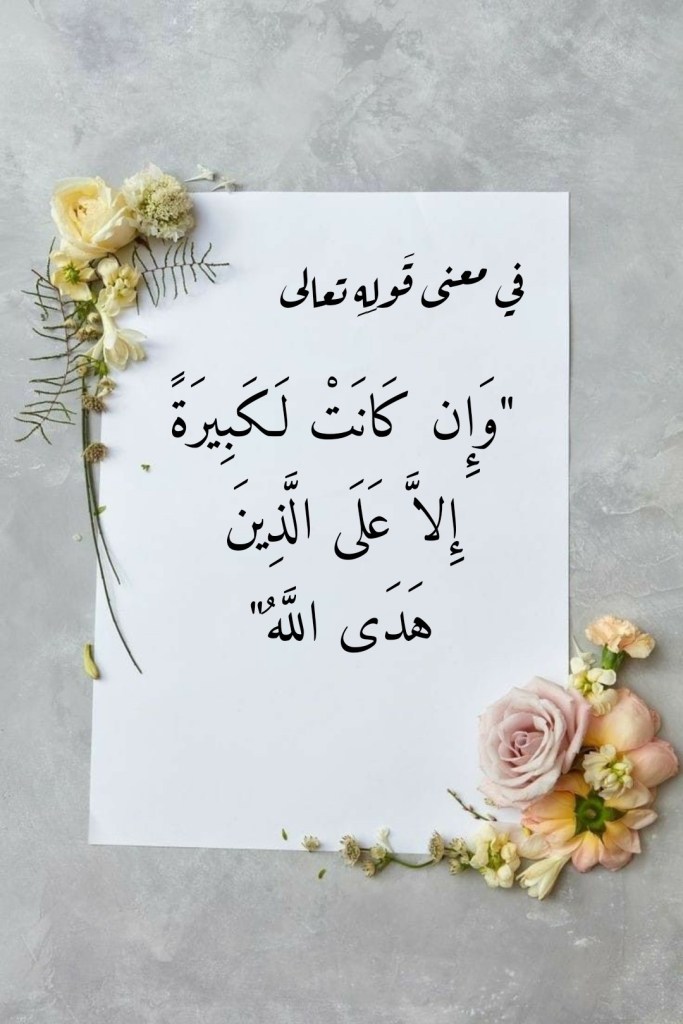 في معنى قَولِهِ تعالى
"وَإِن كَانَتْ لَكَبِيرَةً
إِلاَّ عَلَى الَّذِينَ
هَدَى اللَّهُ"